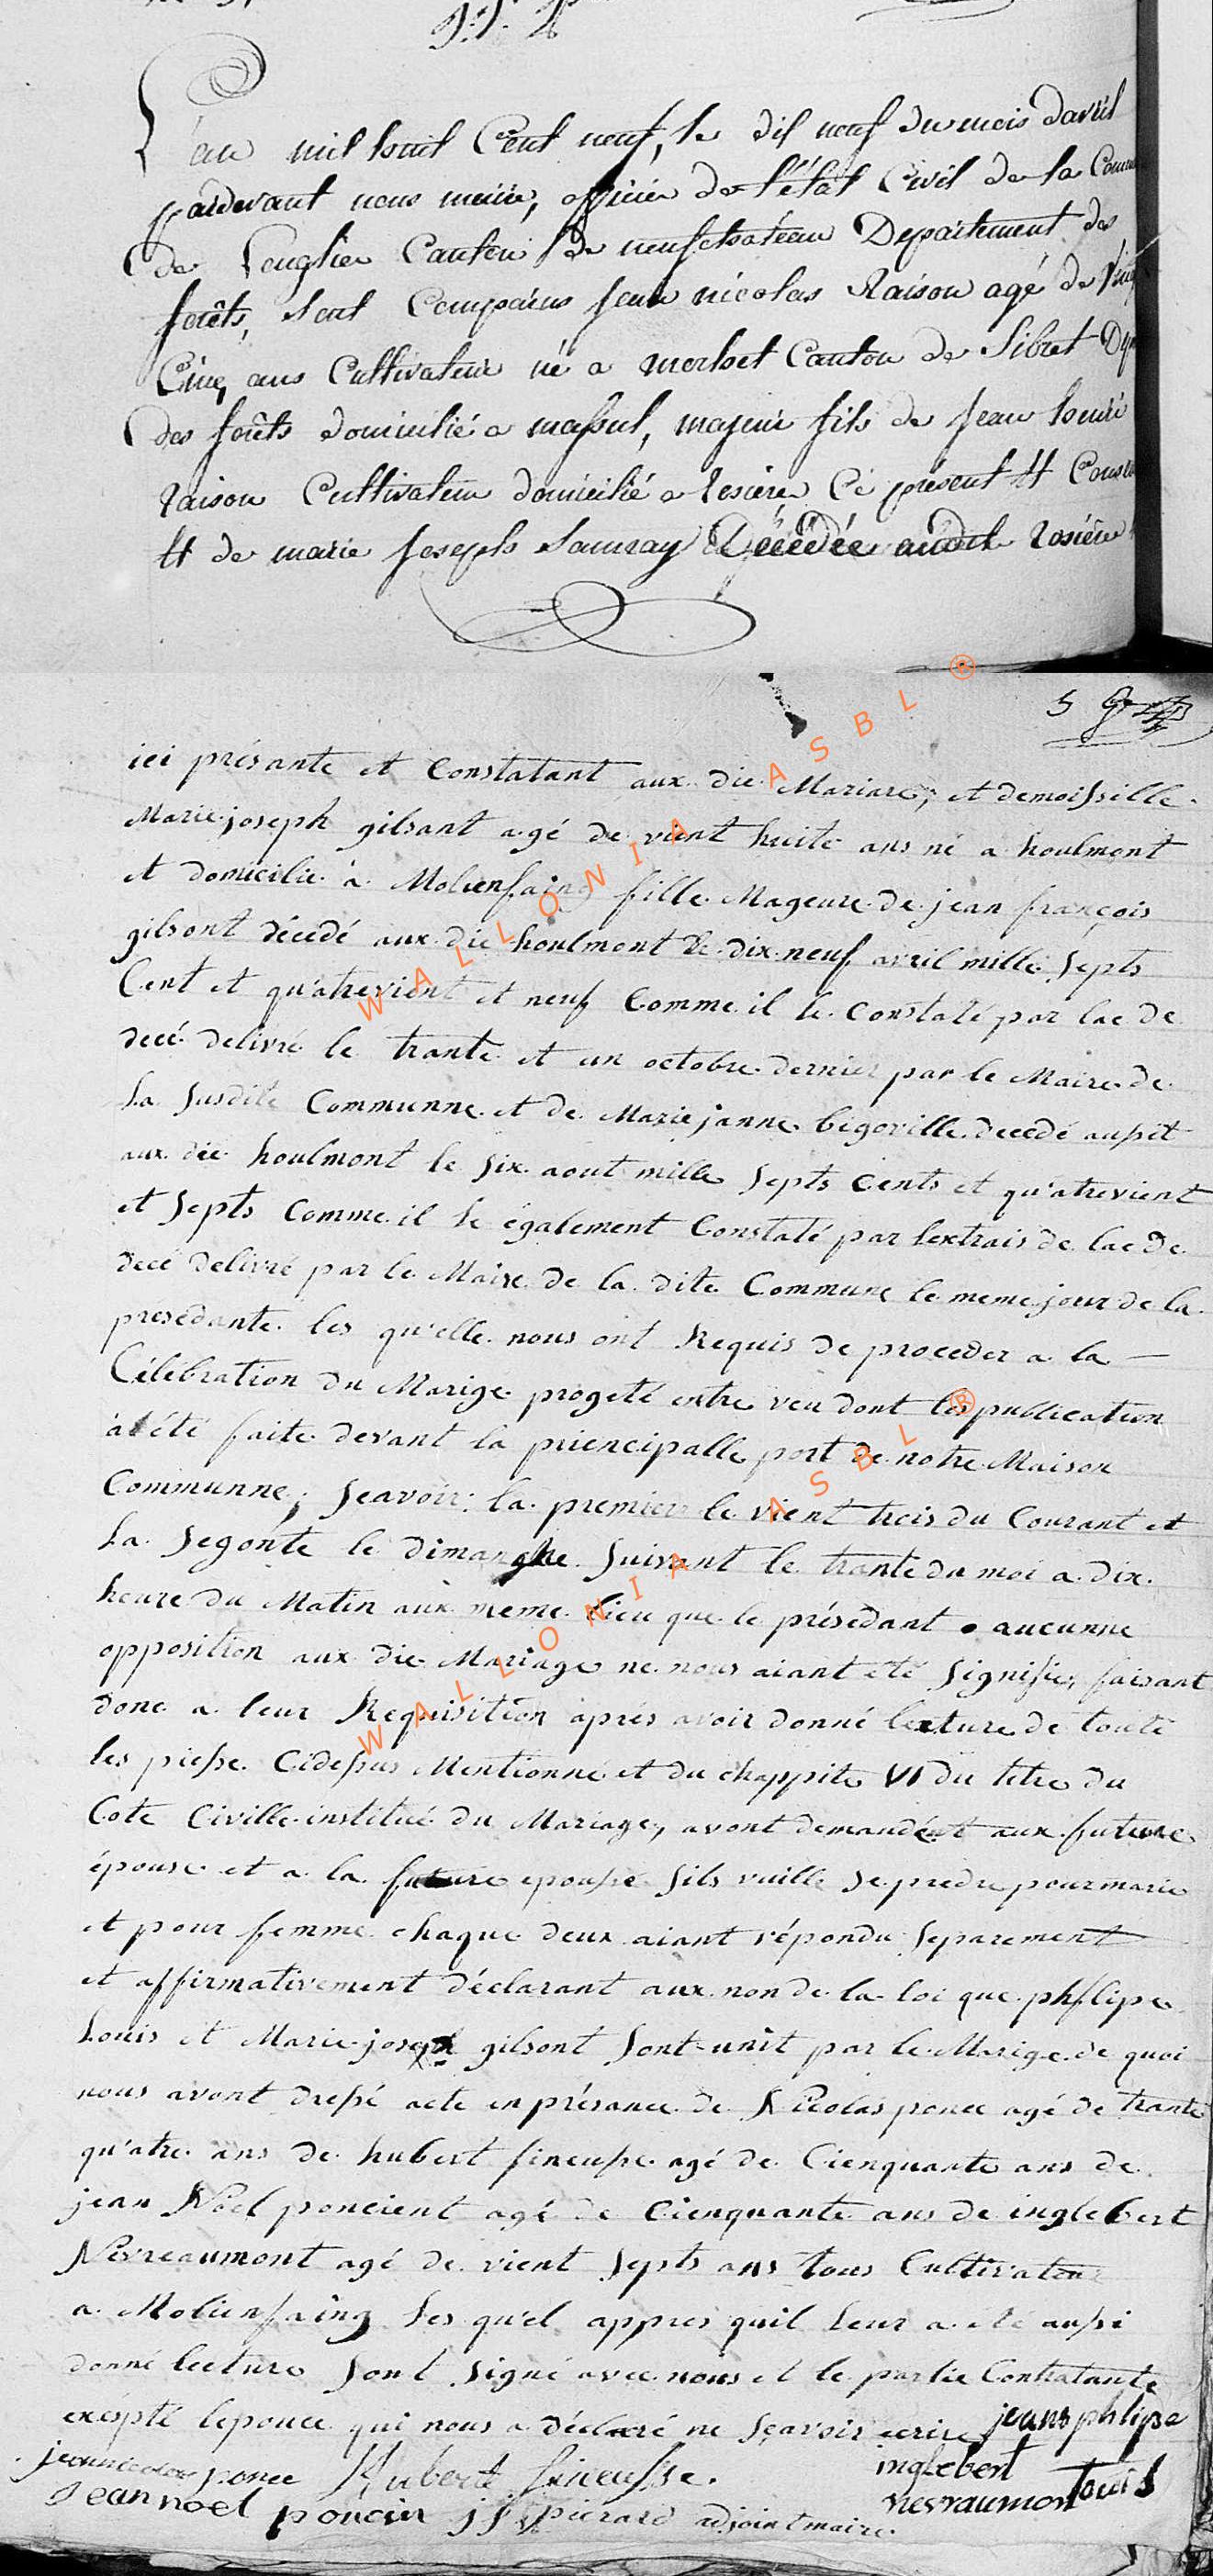 L'an mil huit Cent neuf, le dix neuf du mois d'avril
pardevant nous maire, officier de l'état Civil de la Comm
de Longlier Canton de neufchateau Departement des
forêts, sont Comparus jean nicolas Raison agé de vingt
Cinq ans Cultivateur né a morhet Canton de Sibret Dpt
des forêts domicilié a massul, majeur fils de jean henri
Raison Cultivateur domicilié a rosiere Ci présent H Cons
H de marie joseph Saunay Décédée audit rosiere
5
ici présante et Constatant aux die Mariare, et demoissille
Marie joseph gilsant agé de vient huite ans né a houlmont
et domicilie à Molienfaing fille Mageure de jean françois
gilsont décedé aux die houlmont le dix neuf avril mille septs
Cent et qu'atrevient et neuf Comme il le Constaté par lac de
decé delivré le trante et un octobre dernier par le Maire de
la susdite Communne et de Marie janne bigorville decedé aussit
aux die houlmont le six aout mille septs Cents et qu'atrevient
et septs Comme il le également Constaté par lextrais de lac de
decé delivré par le Maire de la dite Commune le meme jour de la
présedante les qu'elle nous ont Requis de proceder a la
Célébration du Marige progeté entre veu dont les publication
a été faite devant la priencipalle port de notre Maison
Communne, sçavoir la premier le vient trois du Courant et
la segonte le dimanghe suivant le trante du moi a dix
heure du Matin aux meme lieu que le présedant aucunne
opposition aux die Mariage ne nous aiant été signifie, faisant
donc a leur Requisition aprés avoir donné lexture de toute
les piesse Cidessus Mentionné et du chappite VI du titre du
Cote Civille institué du Mariage, avont demandé et aux future
épouse et a la future epousse sils vuille se predre pour marie
et pour femme chaque deux aiant répondu separement
et affirmativement déclarant aux non de la loi que phlipe
Louis et Marie joseph gilsont sont unit par le Marige de quoi
nous avont dressé acte en présance de Nicolas ponce agé de trante
qu'atre ans de hubert fineusse agé de Cienquante ans de
jean Noel poncient agé de Cienquante ans de inglebert
Nevreaumont agé de vient septs ans tous Cultivateur
a Molienfaing les qu'el appres quil leur a été aussi
donné lecture sont signé avec nous et le partie Contratante
exsépté leponce qui nous a déclaré ne sçavoir ecrire jeans phlipe
jeannicolas ponce Hubert fineusse. inglebert
nevraumont Louis
Jean noel poncin j f pierard adjoint maire
WALLONIA ASBL ®
WALLONIA ASBL ®